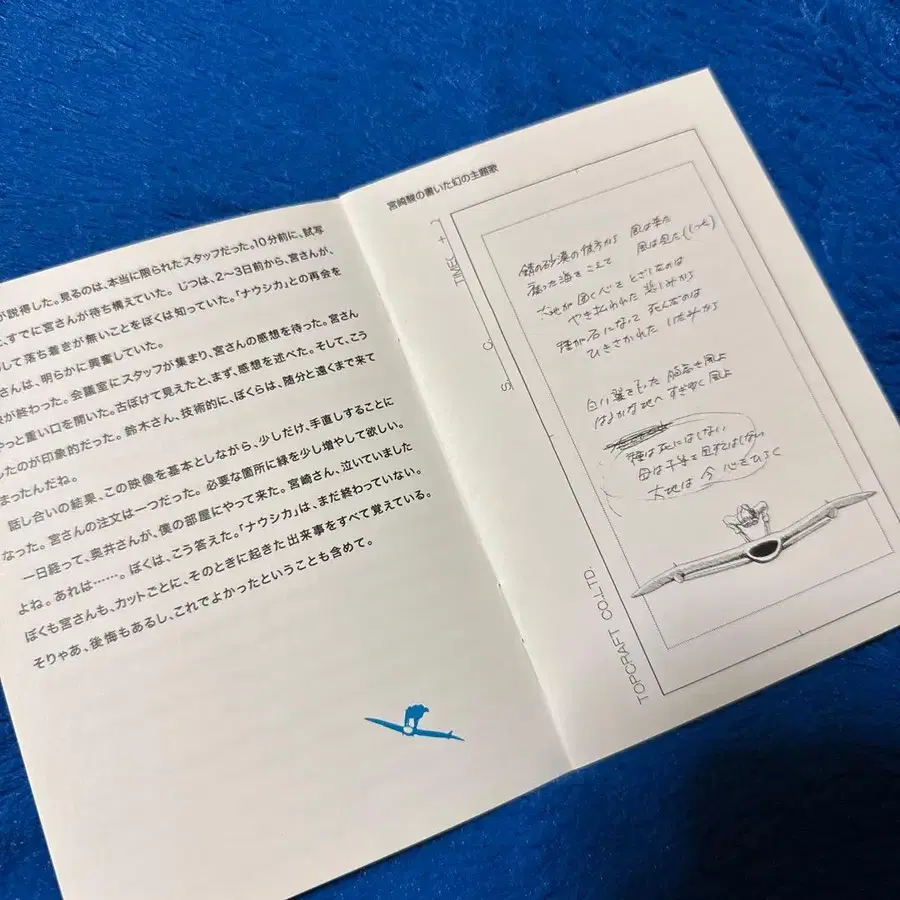 が説得した。見るのは、本当に限られたスタッフだった。10分前に、試写
、すでに宮さんが待ち構えていた。じつは、2〜3日前から、宮さんが、
して落ち着きが無いことをぼくは知っていた。「ナウシカ」との再会を
さんは、明らかに興奮していた。
が終わった。会議室にスタッフが集まり、宮さんの感想を待った。宮さん
やっと重い口を開いた。古ぼけて見えたと、まず、感想を述べた。そして、こう
したのが印象的だった。鈴木さん、技術的に、ぼくらは、随分と遠くまで来て
まったんだね。
話し合いの結果、この映像を基本としながら、少しだけ、手直しすることに
なった。宮さんの注文は一つだった。必要な箇所に緑を少し増やして欲しい。
一日経って、奥井さんが、僕の部屋にやって来た。宮崎さん、泣いていました
よね。あれは……。ぼくは、こう答えた。「ナウシカ」は、まだ終わっていない。
ぼくも宮さんも、カットごとに、そのときに起きた出来事をすべて覚えている。
そりゃあ、後悔もあるし、これでよかったということも含めて。
宮崎駿の書いた幻の主題歌
TIME( + )
S. C.
TOPCRAFT CO.,LTD.
錆の砂漠の彼方から 風は来た
腐った海をこえて 風は見た(しった)
大地が固く心をとざしたのは
やき払われた悲しみから
種が石になって死んだのは
ひきさかれた いたみから
白い翼をもった 風よ
はるかな地へ すぎゆく風よ
種は死にはしない
母は子等を見すてはしない
大地は今 心をひらく